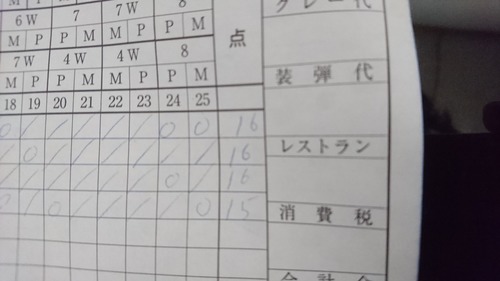 M P M P M
クレー代
6W 7 7W 8
M P P M M P P M
点
7W 4W 4W 8
M P P M M P P M
装弾代
18 19 20 21 22 23 24 25
0 / / / / / 0 0 16
/ 0 / / / / / / 16
レストラン
/ / / / / / 0 / 16
/ 0 / / / / 0 15
消費税
合計金